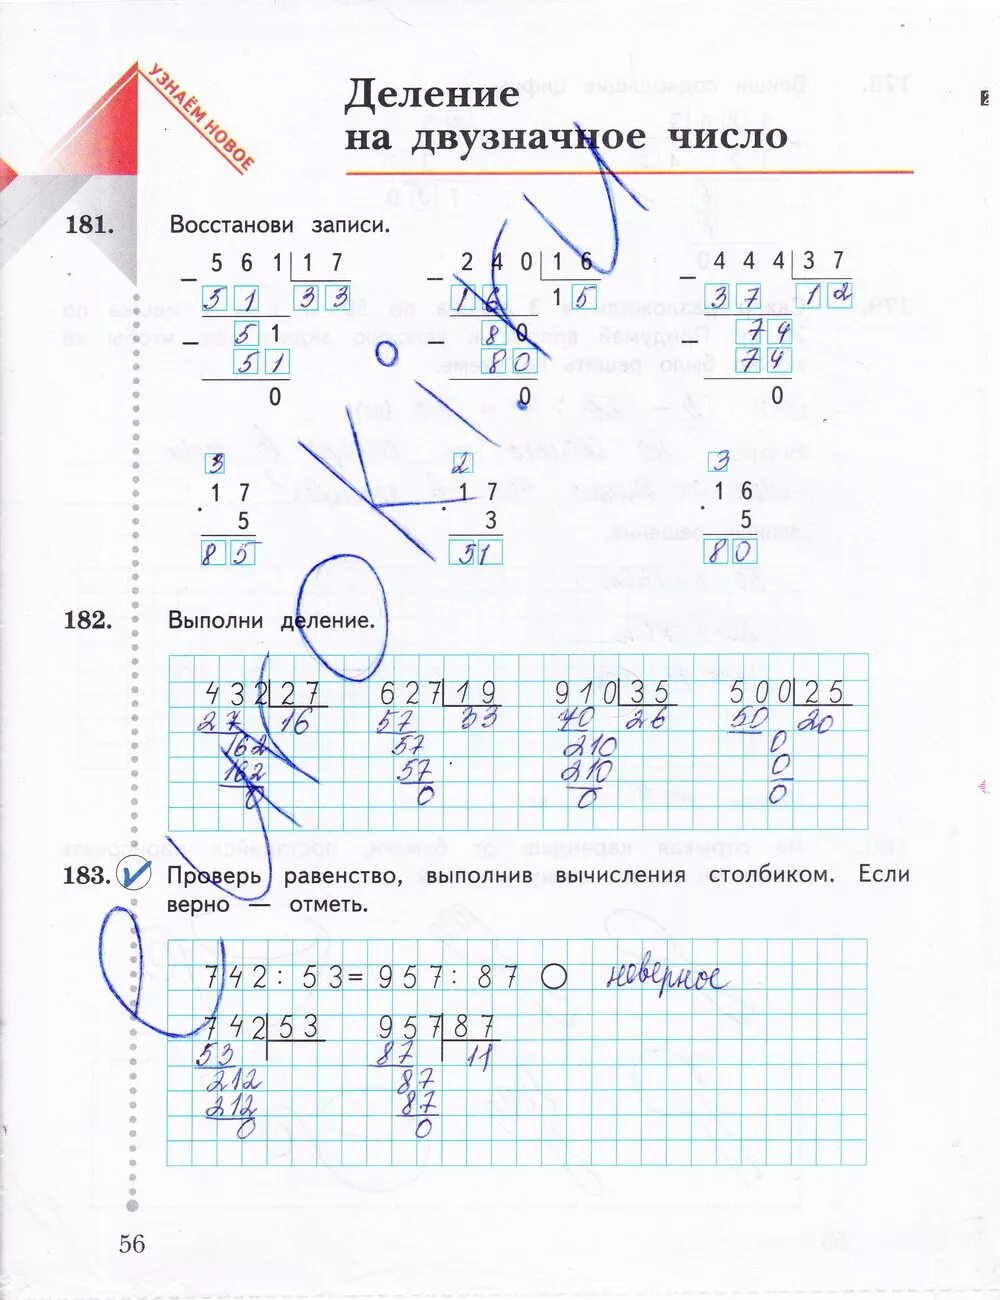 УЗНАЁМ НОВОЕ
Деление
на двузначное число
181. Восстанови записи.
5 6 1 1 7
5 1 3 3
5 1
5 1
0
2 4 0 1 6
1 6 1 5
8 0
8 0
0
4 4 4 3 7
3 7 1 2
7 4
7 4
0
3
1 7
5
8 5
2
1 7
3
5 1
3
1 6
5
8 0
182. Выполни деление.
4 3 2 2 7
27 16
162
162
0
6 2 7 1 9
57 33
57
57
0
9 1 0 3 5
70 26
210
210
0
5 0 0 2 5
50 20
0
0
0
183. Проверь равенство, выполнив вычисления столбиком. Если
верно — отметь.
7 4 2 : 5 3 = 9 5 7 : 8 7 неверное
7 4 2 5 3
53
212
212
0
9 5 7 8 7
87 11
87
87
0
56